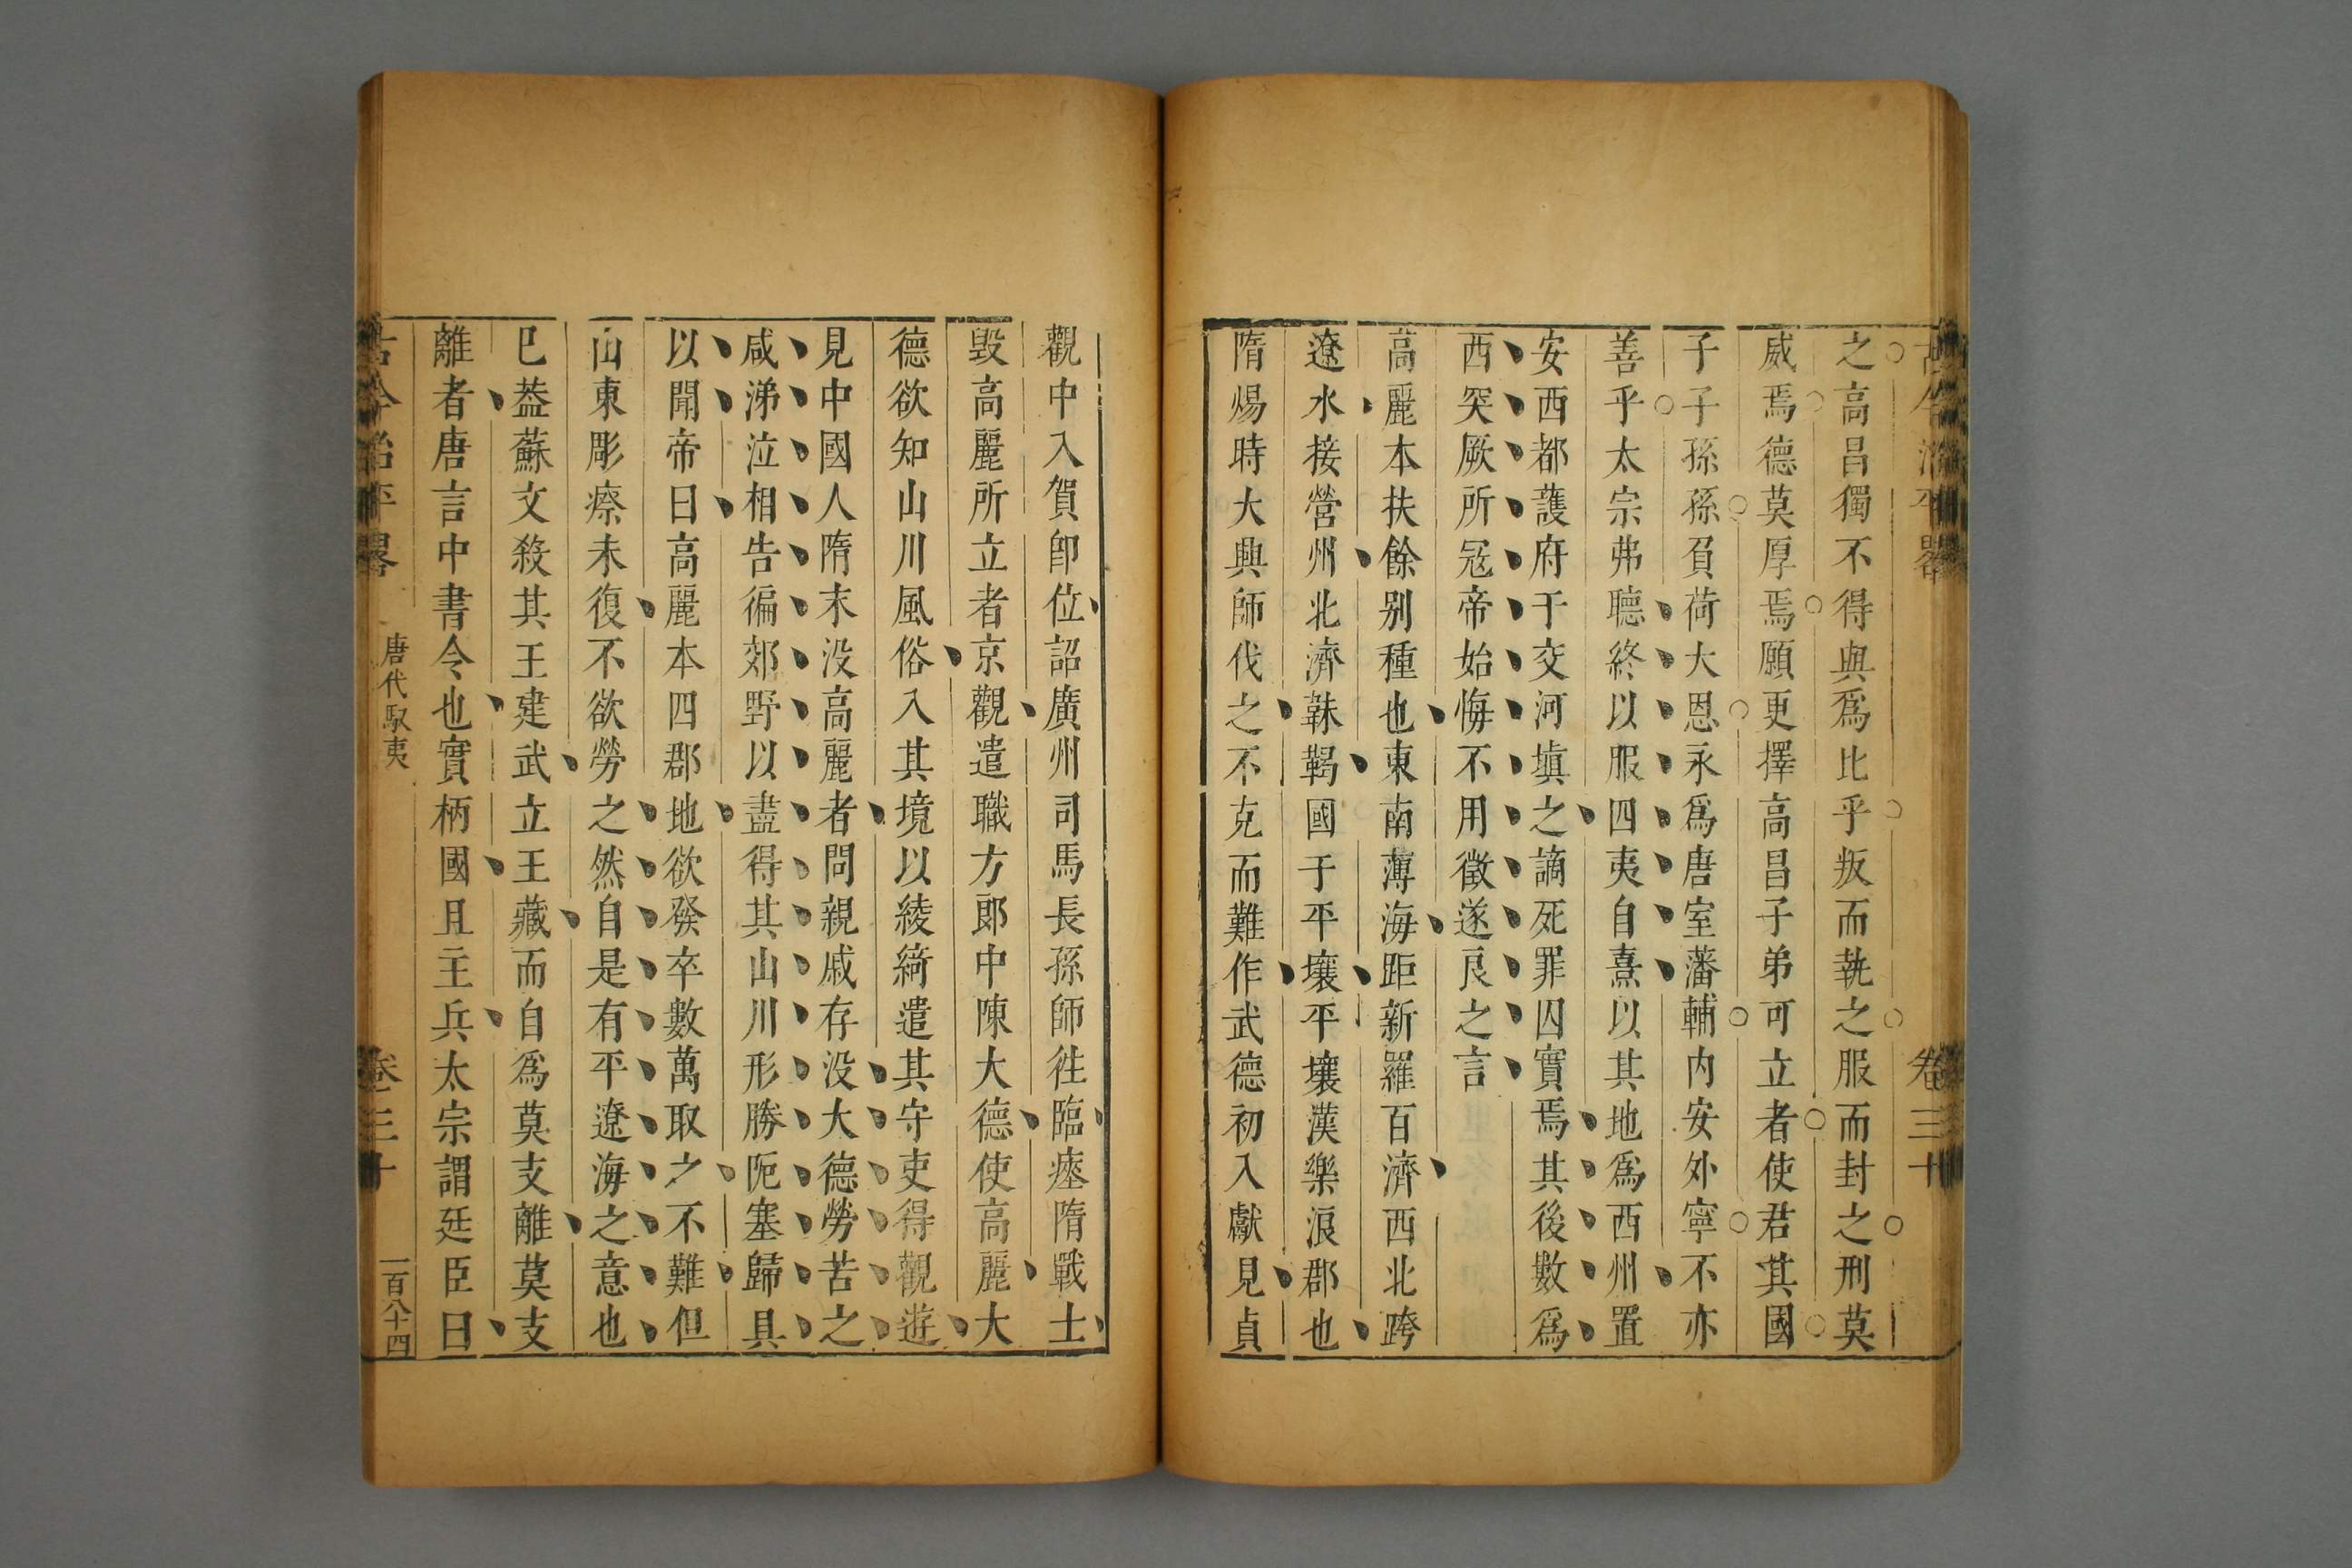 古今治平畧 卷三十
之高昌獨不得與爲比乎叛而執之服而封之刑莫
威焉德莫厚焉願更擇高昌子弟可立者使君其國
子子孫孫負荷大恩永爲唐室藩輔内安外寧不亦
善乎太宗弗聽終以服四夷自熹以其地爲西州置
安西都護府于交河塡之謫死罪囚實焉其後數爲
西突厥所冦帝始悔不用徵遂良之言
高麗本扶餘别種也東南薄海距新羅百濟西北跨
遼水接營州北濟靺鞨國于平壤平壤漢樂浪郡也
隋煬時大興師伐之不克而難作武德初入獻見貞
觀中入賀卽位詔廣州司馬長孫師徃臨瘞隋戰士
毀高麗所立者京觀遣職方郎中陳大德使高麗大
德欲知山川風俗入其境以綾綺遣其守吏得觀遊
見中國人隋末没高麗者問親戚存没大德勞苦之
咸涕泣相告徧郊野以盡得其山川形勝阨塞歸具
以聞帝曰高麗本四郡地欲發卒數萬取之不難但
山東彫瘵未復不欲勞之然自是有平遼海之意也
巳葢蘇文殺其王建武立王藏而自爲莫支離莫支
離者唐言中書令也實柄國且主兵太宗謂廷臣曰
古今治平畧 唐代馭夷 卷三十 一百八十四